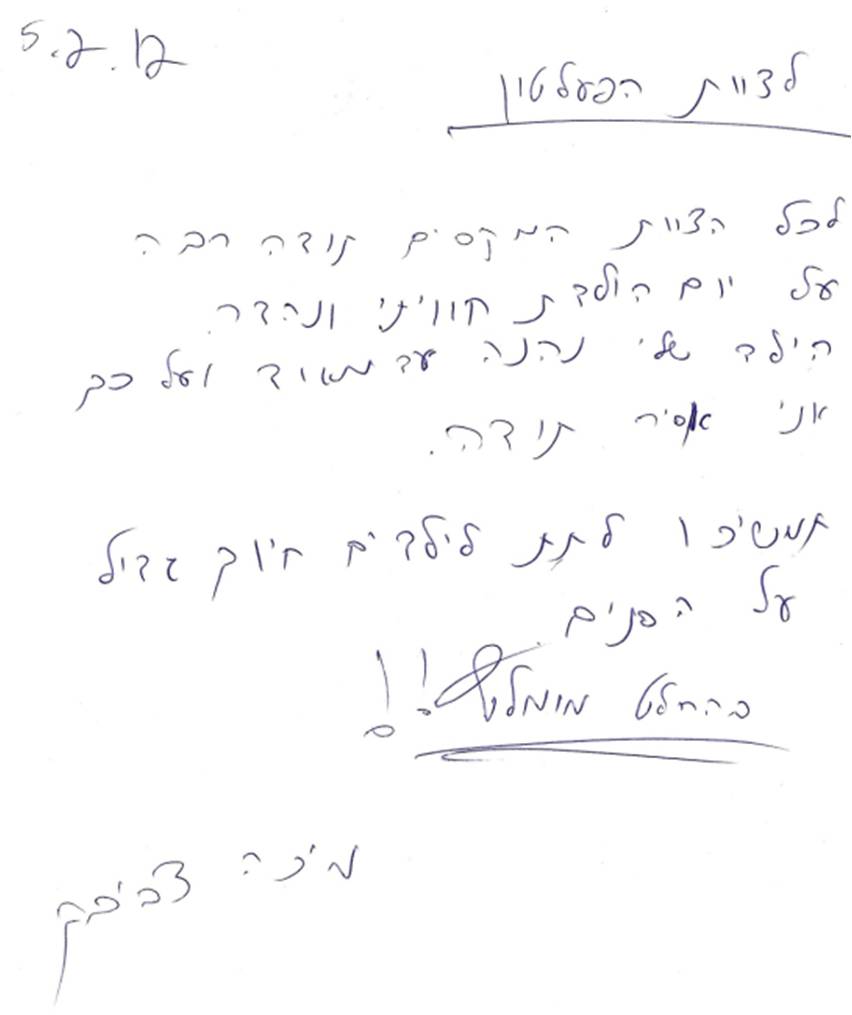 5.2.12
לצוות הפעלטון
לכל הצוות המקסים תודה רבה
על יום הולדת חוויתי ונהדר.
הילד שלי נהנה עד מאוד ועל כך
אני אסיר תודה.
תמשיכו לתת לילדים חיוך גדול
על הפנים.
בהחלט מומלץ!!
מיכה